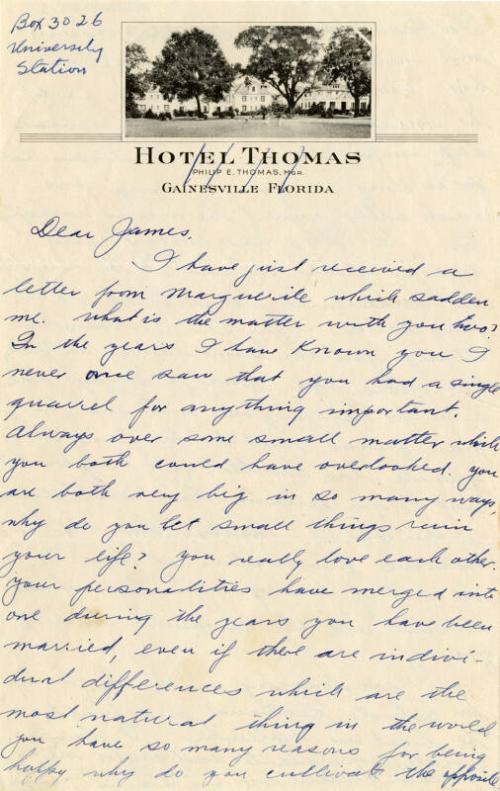 Box 3026
University
Station
HOTEL THOMAS
PHILIP E. THOMAS, MGR.
GAINESVILLE FLORIDA
Dear James,
I have just received a
letter from Marguerite which sadden
me. What is the matter with you two?
In the years I have known you I
never once saw that you had a single
quarrel for anything important.
Always over some small matter which
you both could have overlooked. You
are both very big in so many ways,
why do you let small things ruin
your life? You really love each other.
Your personalities have merged into
one during the years you have been
married, even if there are indivi-
dual differences which are the
most natural thing in the world
you have so many reasons for being
happy, why do you cultivate the opposite